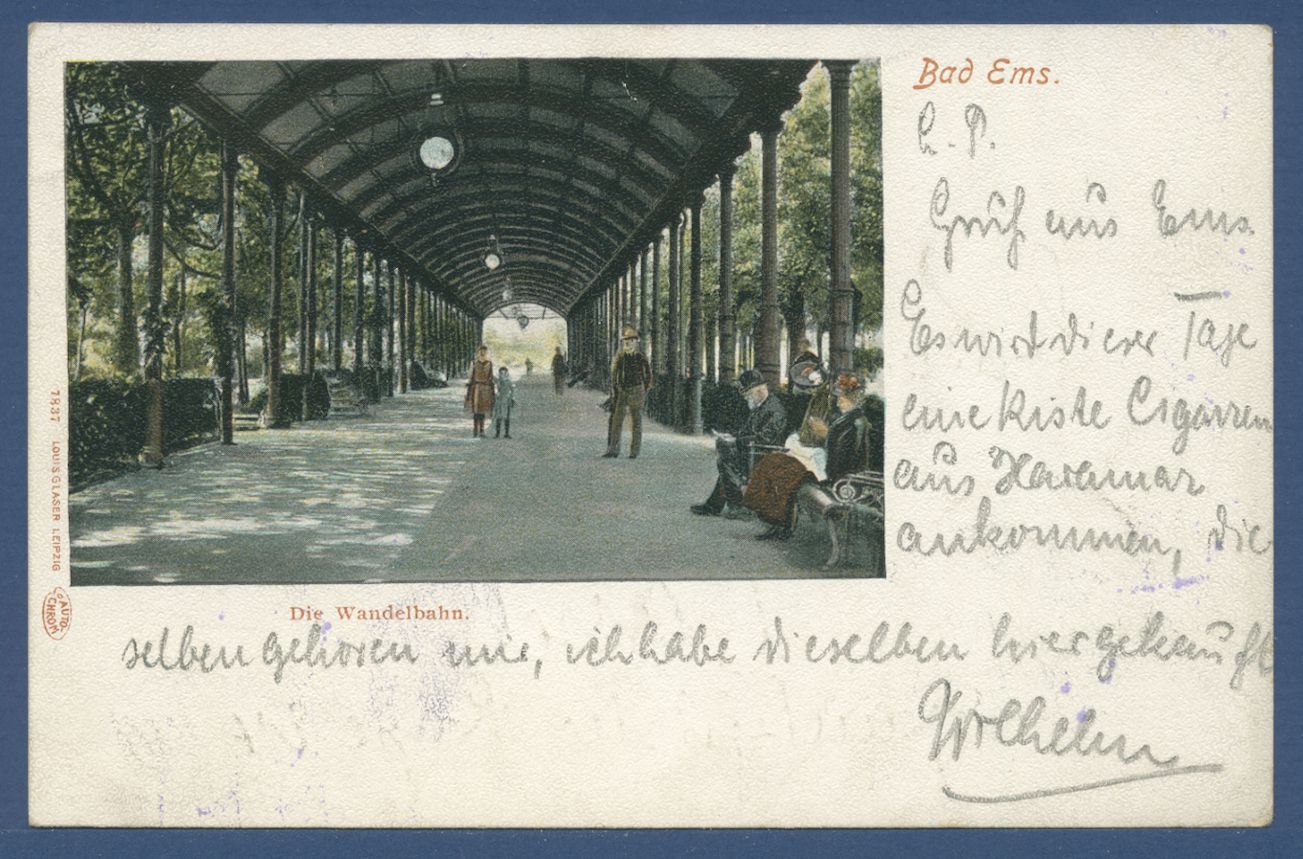 Bad Ems.
L. P.
Gruß aus Ems.
Es wird dieser Tage
eine Kiste Cigarren
aus
ankommen, die
selben gehören mir, ich habe dieselben hier gekauft
Wilhelm
Die Wandelbahn.
7837 LOUIS GLASER LEIPZIG
AUTO-
CHROM